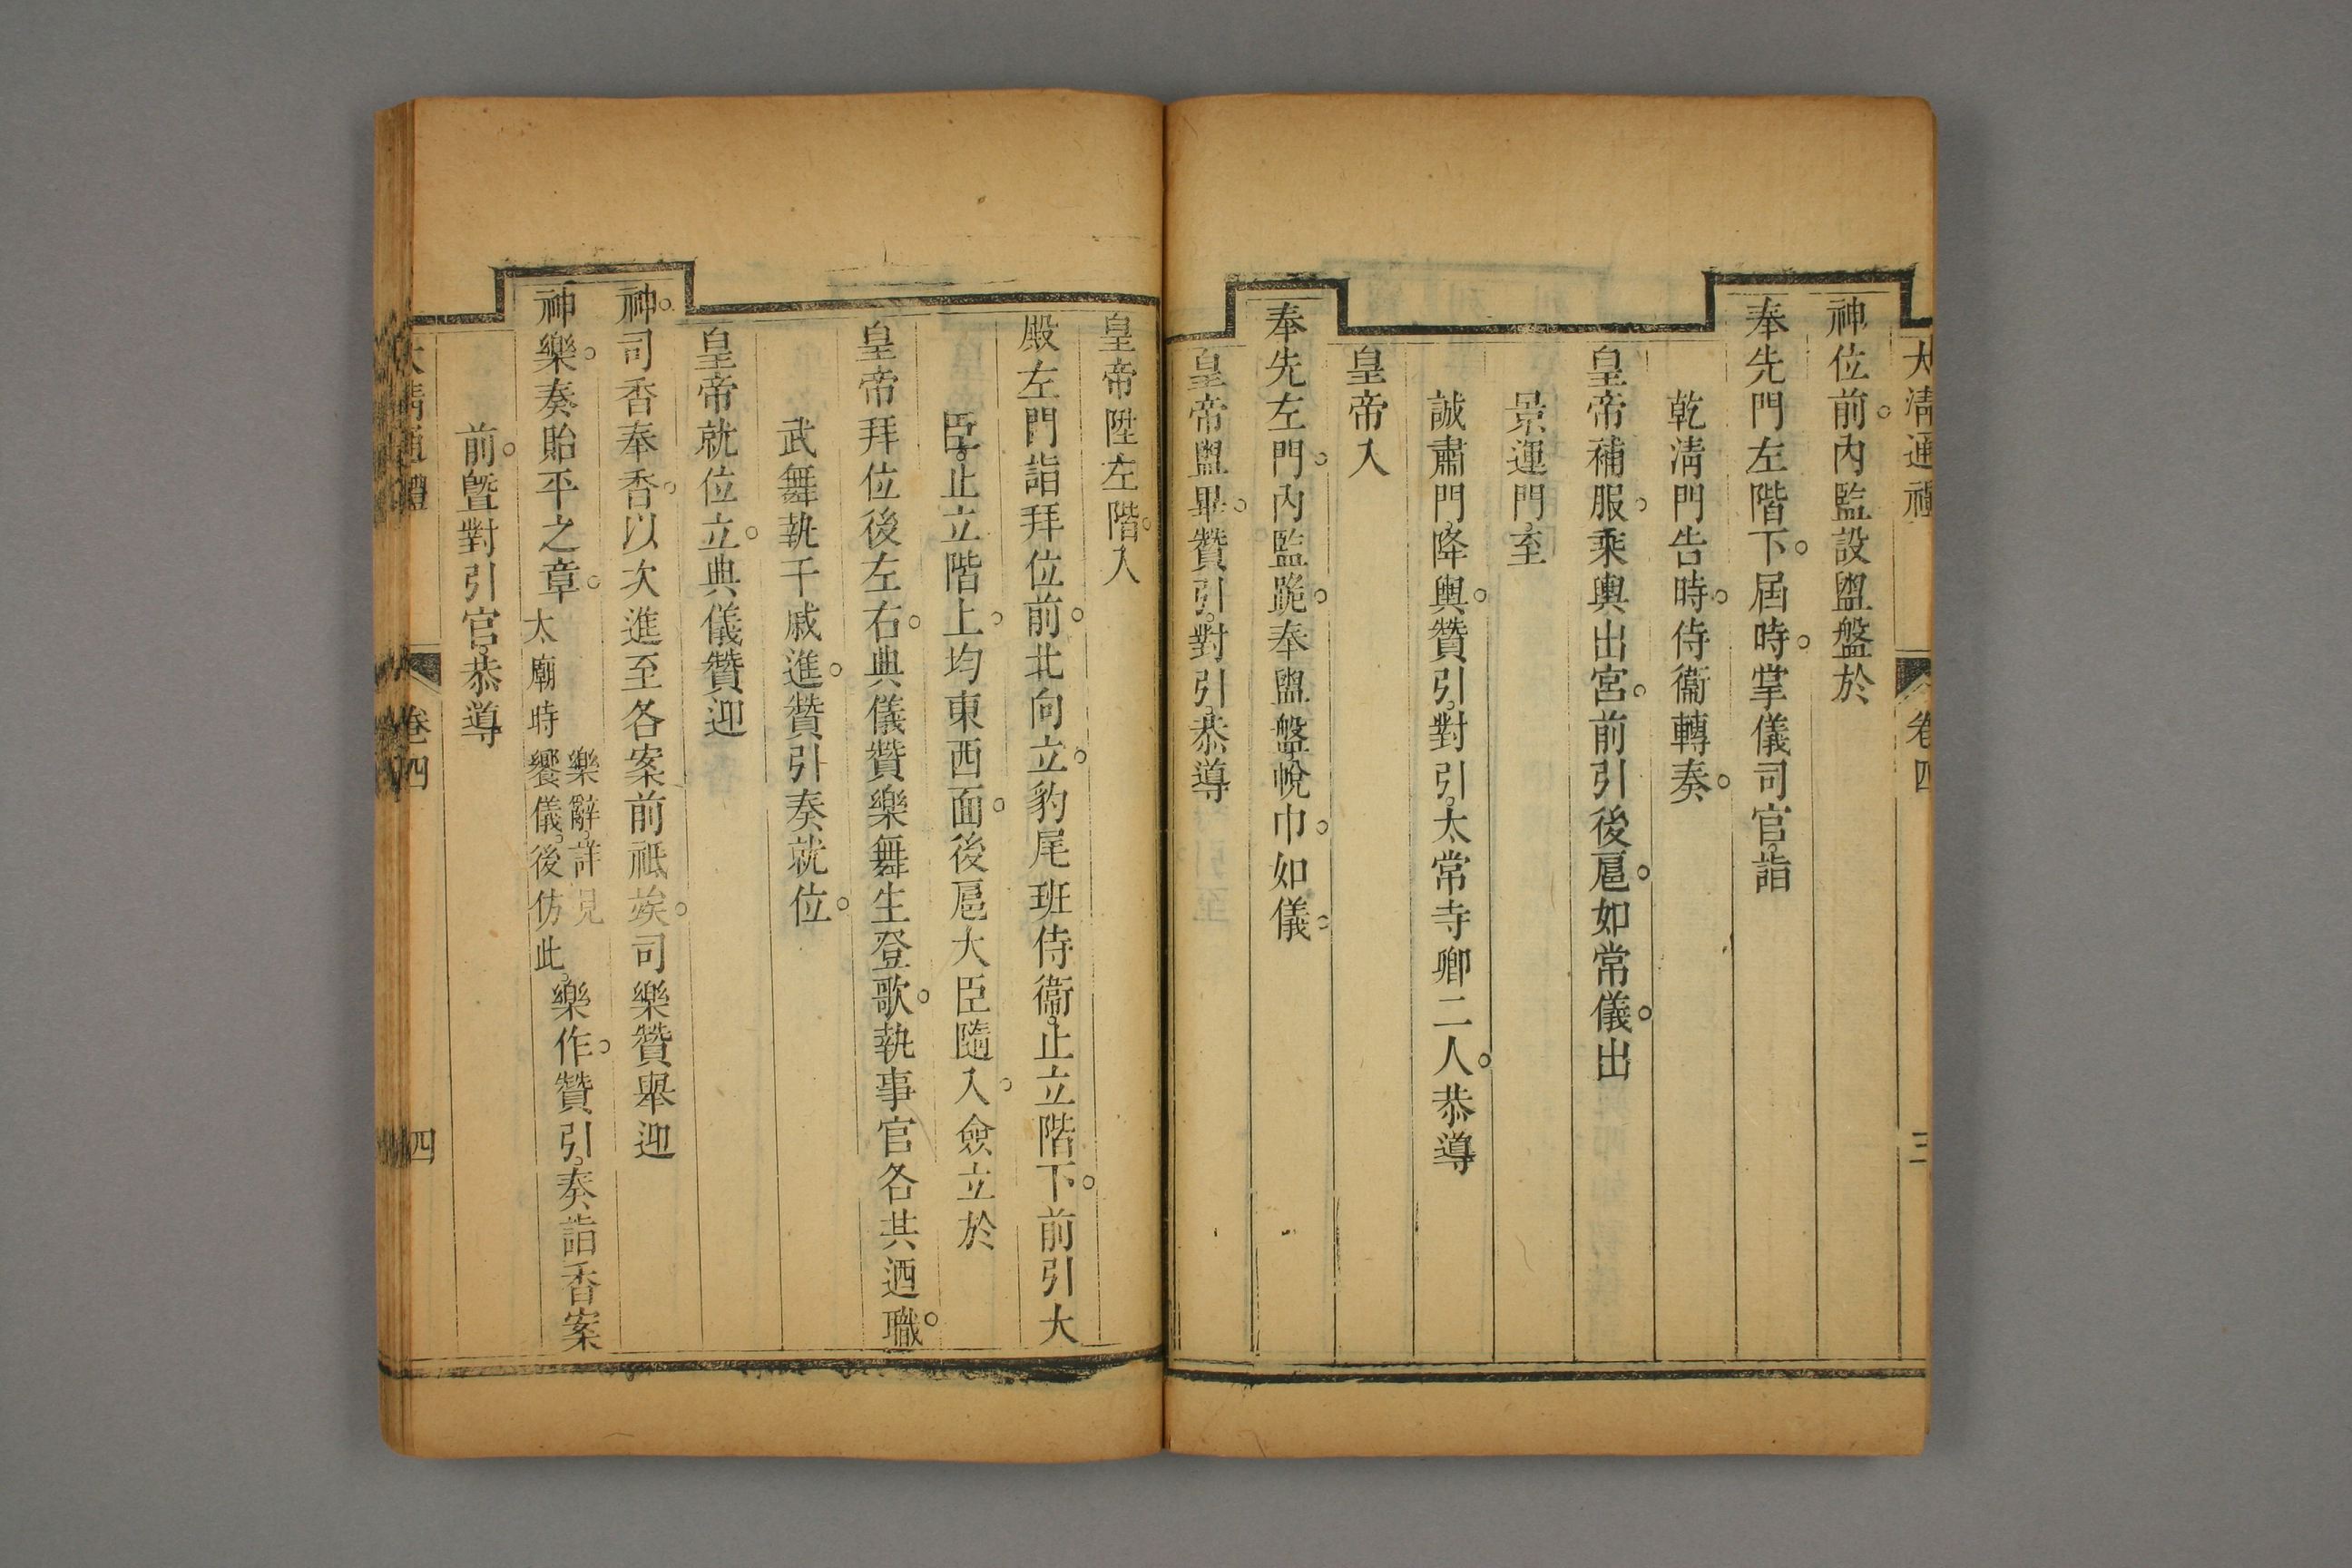 大清通禮 卷四 三
神位前。內監設盥盤於
奉先門左階下。屆時。掌儀司官。詣
乾淸門告時。侍衞轉奏。
皇帝補服。乘輿出宮。前引後扈。如常儀。出
景運門。至
誠肅門。降輿。贊引。對引。太常寺卿二人。恭導
皇帝入
奉先左門。內監跪。奉盥盤帨巾。如儀。
皇帝盥畢。贊引。對引。恭導
皇帝陞左階。入
殿左門詣拜位前。北向立。豹尾班侍衞。止立階下。前引大
臣。止立階上。均東西面。後扈大臣隨入。僉立於
皇帝拜位後左右。典儀贊樂舞生登歌。執事官各共迺職。
武舞執干戚進。贊引奏就位。
皇帝就位立。典儀贊迎
神。司香奉香。以次進至各案前祗竢。司樂贊舉迎
神樂。奏貽平之章。樂辭。詳見太廟時饗儀。後仿此。樂作。贊引。奏詣香案
前。曁對引官。恭導
大淸通禮 卷四 四